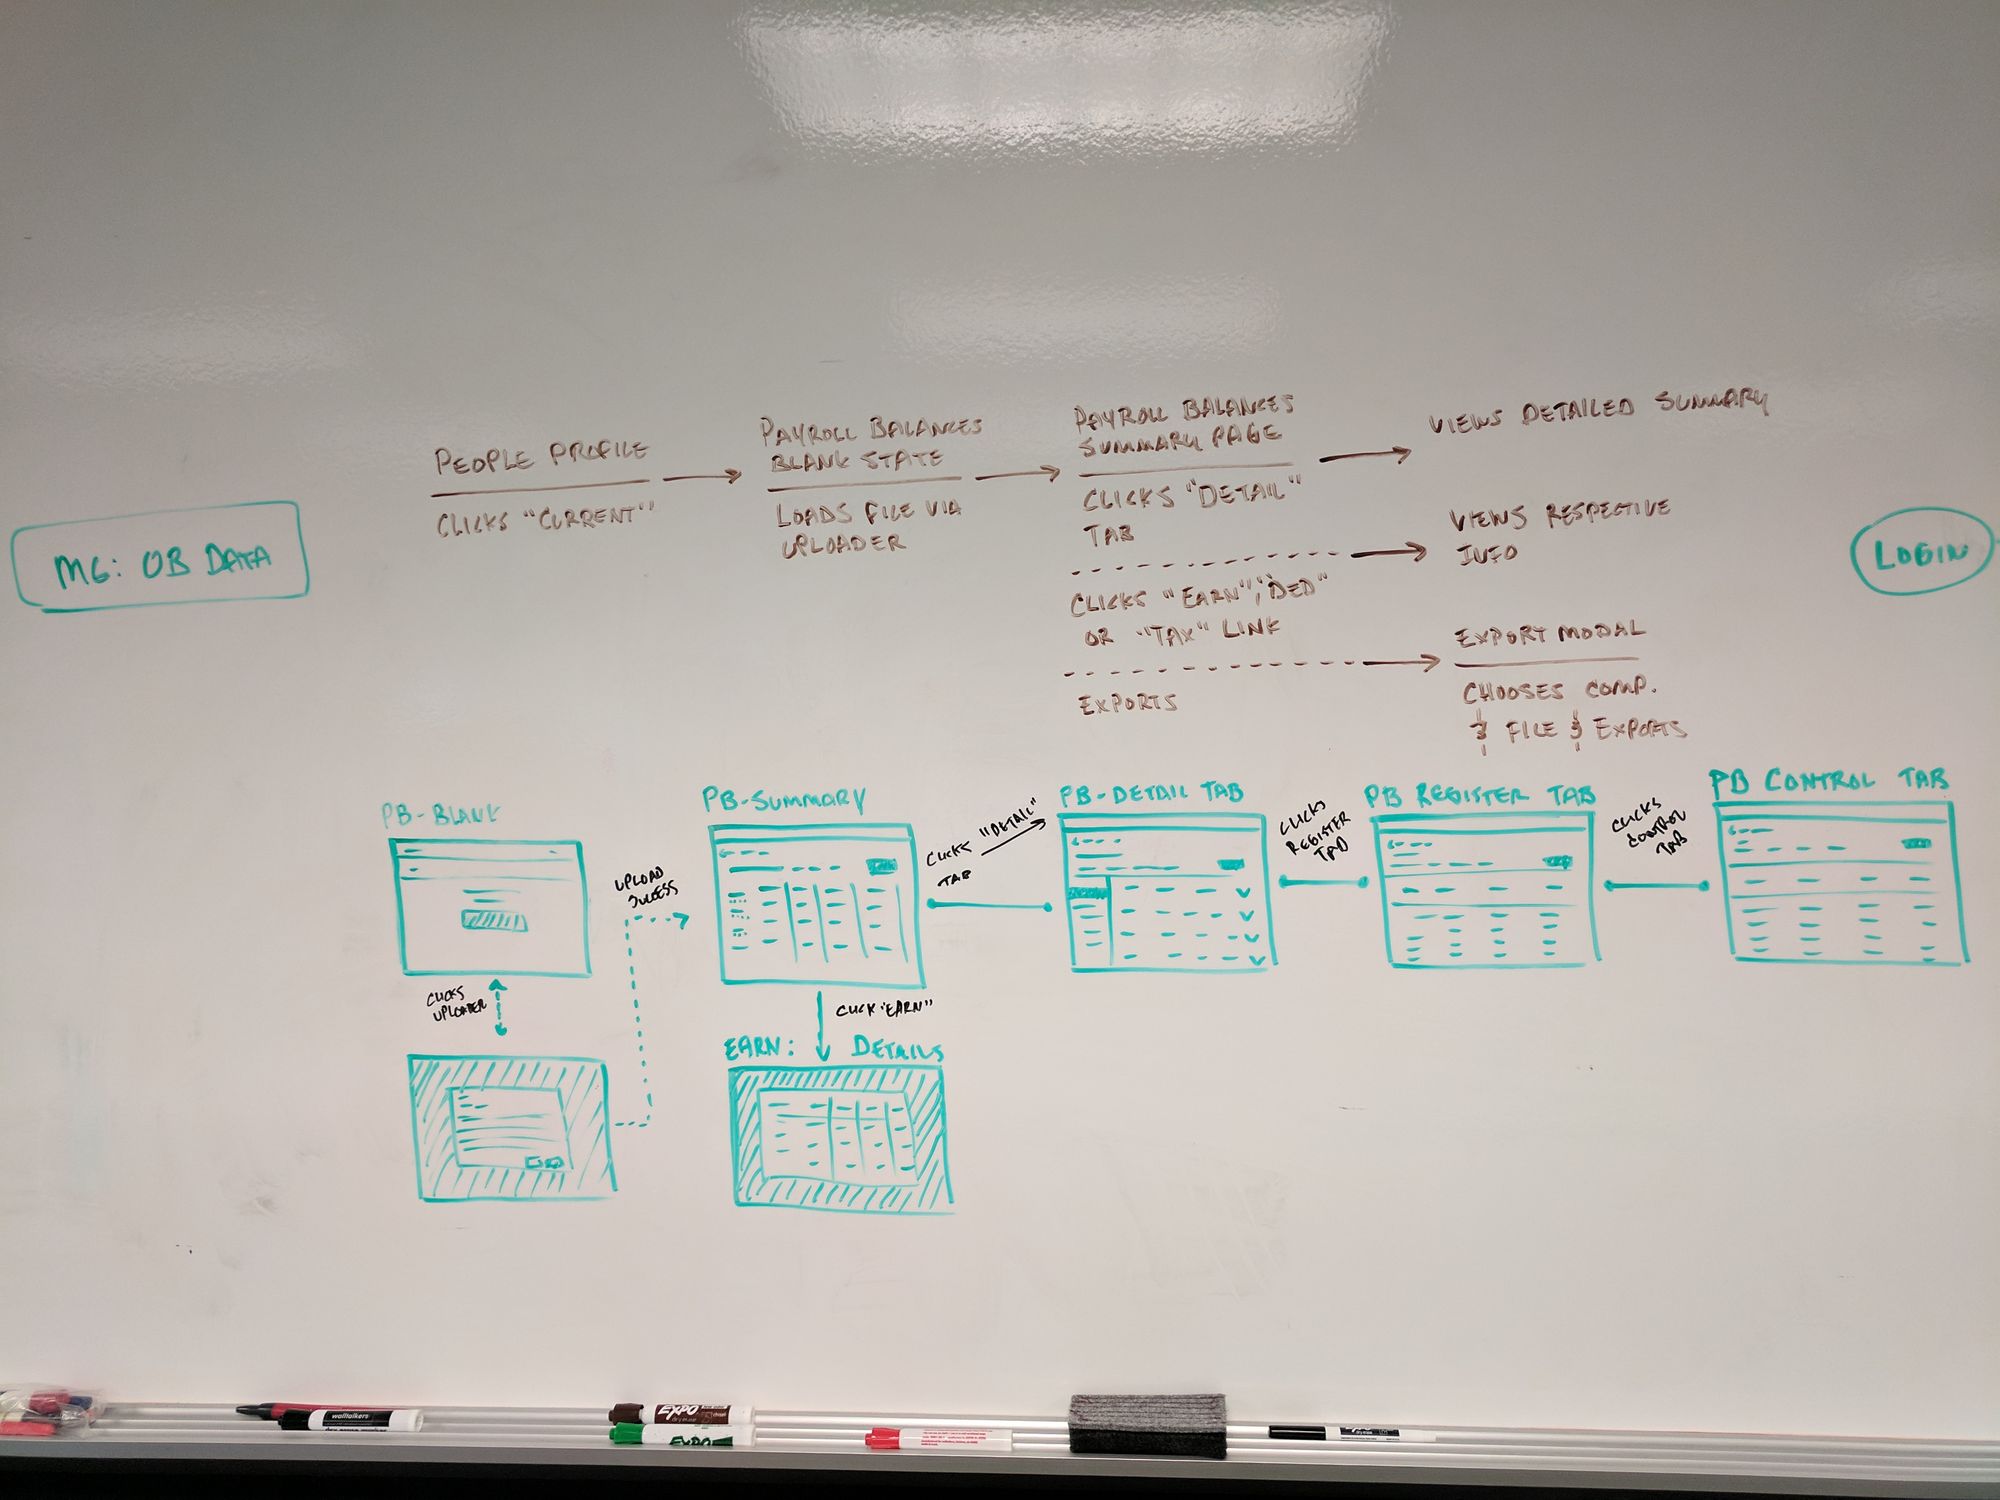 M6: OB DATA
PEOPLE PROFILE
CLICKS "CURRENT"
PAYROLL BALANCES
BLANK STATE
LOADS FILE VIA
UPLOADER
PAYROLL BALANCES
SUMMARY PAGE
CLICKS "DETAIL"
TAB
CLICKS "EARN", "DED"
OR "TAX" LINK
EXPORTS
VIEWS DETAILED SUMMARY
VIEWS RESPECTIVE
INFO
EXPORT MODAL
CHOOSES COMP.
& FILE & EXPORTS
LOGIN
PB-BLANK
CLICKS
UPLOADER
UPLOAD
SUCCESS
PB-SUMMARY
CLICK "EARN"
EARN: DETAILS
CLICKS "DETAIL"
TAB
PB-DETAIL TAB
CLICKS
REGISTER
TAB
PB REGISTER TAB
CLICKS
CONTROL
TAB
PB CONTROL TAB
walltalkers
EXPO
EXPO